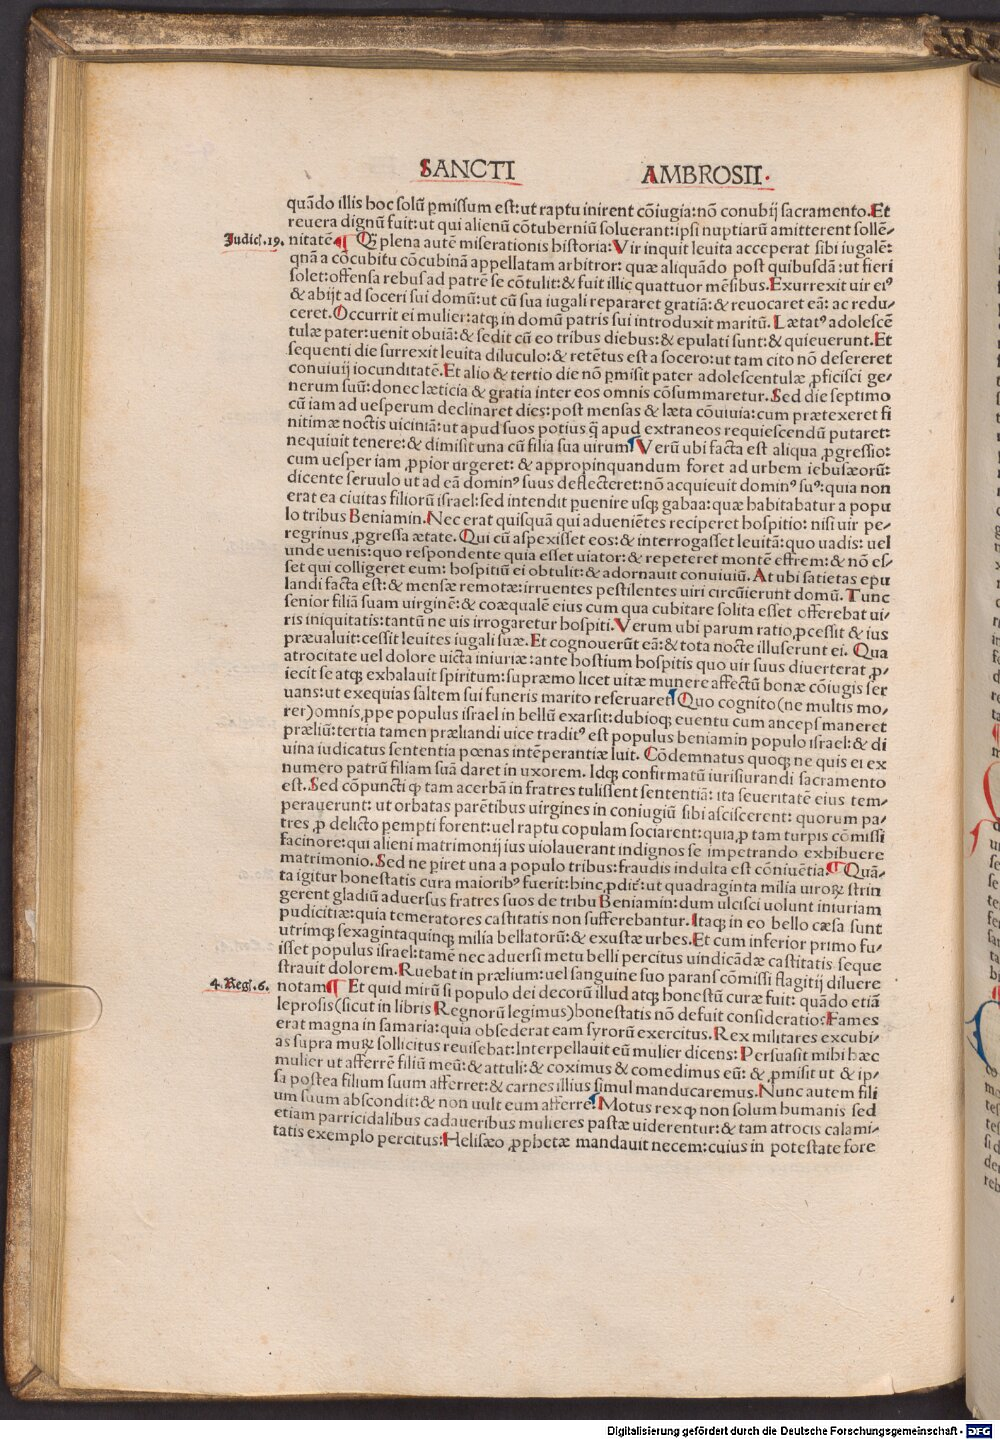 SANCTI AMBROSII.
quãdo illis hoc solũ ꝑmissum est: ut raptu inirent cõiugia: nõ conubij sacramento. Et
reuera dignũ fuit: ut qui alienũ cõtuberniũ soluerant: ipsi nuptiarũ amitterent sollẽ-
Judic̄. 19.
nitatẽ ¶ Q̃ plena autẽ miserationis historia: Vir inquit leuita acceperat sibi iugalẽ:
qnã a cõcubitu cõcubinã appellatam arbitror: quæ aliquãdo post quibusdã: ut fieri
solet: offensa rebus ad patrẽ se cõtulit: & fuit illic quattuor mẽsibus. Exurrexit uir eiꝰ
& abijt ad soceri sui domũ: ut cũ sua iugali repararet gratiã: & reuocaret eã: ac redu-
ceret. Occurrit ei mulier: atqꝫ in domũ patris sui introduxit maritũ. Lætatꝰ adolescẽ
tulæ pater: uenit obuiã: & sedit cũ eo tribus diebus: & epulati sunt: & quieuerunt. Et
sequenti die surrexit leuita diluculo: & retẽtus est a socero: ut tam cito nõ desereret
conuiuij iocunditatẽ. Et alio & tertio die nõ ꝑmisit pater adolescentulæ ꝓficisci ge-
nerum suũ: donec læticia & gratia inter eos omnis cõsummaretur. Sed die septimo
cũ iam ad uesperum declinaret dies: post mensas & læta cõuiuia: cum prætexeret fi
nitimæ noctis uiciniã: ut apud suos potius q̃ apud extraneos requiescendũ putaret:
nequiuit tenere: & dimisit una cũ filia sua uirum ¶ Verũ ubi facta est aliqua ꝓgressio:
cum uesper iam ꝓpior urgeret: & appropinquandum foret ad urbem iebusæorũ:
dicente seruulo ut ad eã dominꝰ suus deflecteret: nõ acquieuit dominꝰ suꝰ: quia non
erat ea ciuitas filiorũ israel: sed intendit ꝑuenire usqꝫ gabaa: quæ habitabatur a popu
lo tribus Beniamin. Nec erat quisquã qui adueniẽtes reciperet hospitio: nisi uir pe-
regrinus ꝓgressa ætate. Qui cũ aspexisset eos: & interrogasset leuitã: quo uadis: uel
unde uenis: quo respondente quia esset uiator: & repeteret montẽ effrem: & nõ es-
set qui colligeret eum: hospitiũ ei obtulit: & adornauit conuiuiũ. At ubi satietas epu
landi facta est: & mensæ remotæ: irruentes pestilentes uiri circũierunt domũ. Tunc
senior filiã suam uirginẽ: & coæqualẽ eius cum qua cubitare solita esset offerebat ui-
ris iniquitatis: tantũ ne uis irrogaretur hospiti. Verum ubi parum ratio ꝓcessit & ius
præualuit: cessit leuites iugali suæ. Et cognouerũt eã: & tota nocte illuserunt ei. Qua
atrocitate uel dolore uicta iniuriæ: ante hostium hospitis quo uir suus diuerterat ꝓ-
iecit se atqꝫ exhalauit spiritum: supræmo licet uitæ munere affectũ bonæ cõiugis ser
uans: ut exequias saltem sui funeris marito reseruaret ¶ Quo cognito (ne multis mo-
rer) omnis ꝓpe populus israel in bellũ exarsit: dubioqꝫ euentu cum anceps maneret
præliũ: tertia tamen præliandi uice traditꝰ est populus beniamin populo israel: & di
uina iudicatus sententia pœnas intẽperantiæ luit. Cõdemnatus quoqꝫ ne quis ei ex
numero patrũ filiam suã daret in uxorem. Idqꝫ confirmatũ iurisiurandi sacramento
est. Sed cõpuncti ꝙ tam acerbã in fratres tulissent sententiã: ita seueritatẽ eius tem-
perauerunt: ut orbatas parẽtibus uirgines in coniugiũ sibi asciscerent: quorum pa-
tres ꝓ delicto ꝑempti forent: uel raptu copulam sociarent: quia ꝓ tam turpis cõmissi
facinore: qui alieni matrimonij ius uiolauerant indignos se impetrando exhibuere
matrimonio. Sed ne ꝑiret una a populo tribus: fraudis indulta est cõniuẽtia. ¶ Quã-
ta igitur honestatis cura maioribꝰ fuerit: hinc ꝓdit̃: ut quadraginta milia uiroꝝ strin
gerent gladiũ aduersus fratres suos de tribu Beniamin: dum ulcisci uolunt iniuriam
pudicitiæ: quia temeratores castitatis non sufferebantur. Itaqꝫ in eo bello cæsa sunt
utrimqꝫ sexagintaquinqꝫ milia bellatorũ: & exustæ urbes. Et cum inferior primo fu-
isset populus israel: tamẽ nec aduersi metu belli percitus uindicãdæ castitatis seque
strauit dolorem. Ruebat in prælium: uel sanguine suo parans cõmissi flagitij diluere
4. Reg̃. 6.
notam ¶ Et quid mirũ si populo dei decorũ illud atqꝫ honestũ curæ fuit: quãdo etiã
leprosis (sicut in libris Regnorũ legimus) honestatis nõ defuit consideratio: Fames
erat magna in samaria: quia obsederat eam syrorũ exercitus. Rex militares excubi-
as supra muꝝ sollicitus reuisebat: Interpellauit eũ mulier dicens: Persuasit mihi hæc
mulier ut afferrẽ filiũ meũ: & attuli: & coximus & comedimus eũ: & ꝓmisit ut & ip-
sa postea filium suum afferret: & carnes illius simul manducaremus. Nunc autem fili
um suum abscondit: & non uult eum afferre. ¶ Motus rex ꝙ non solum humanis sed
etiam parricidalibus cadaueribus mulieres pastæ uiderentur: & tam atrocis calami-
tatis exemplo percitus: Helisæo ꝓphetæ mandauit necem: cuius in potestate fore
Digitalisierung gefördert durch die Deutsche Forschungsgemeinschaft - DFG